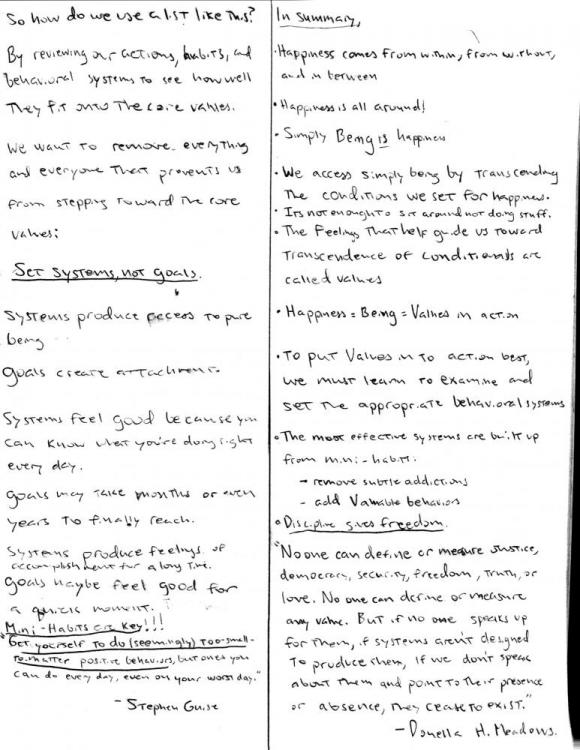 So how do we use a list like this?
By reviewing our actions, habits, and
behavioral systems to see how well
They fit onto The core values.
We want to remove everything
and everyone That prevents us
from stepping Toward The core
values:
Set Systems, not goals.
Systems produce access to pure
being
Goals create attachment.
Systems feel good because you
can know what you're doing right
every day.
Goals may take months or even
years To finally reach.
Systems produce feelings of
accomplishment for a long time.
Goals maybe feel good for
a quick moment.
Mini-Habits are key!!!
"Get yourself to do (seemingly) too-small-
to-matter positive behaviors, but ones you
can do every day, even on your worst day."
- Stephen Guise
In summary,
• Happiness comes from within, from without,
and in between
• Happiness is all around!
• Simply Being is happiness
• We access simply being by transcending
The conditions we set for happiness.
• Its not enough to sit around not doing stuff.
• The Feelings That help guide us Toward
Transcendence of conditionals are
called values
• Happiness = Being = Values in action
• To put Values in to action best,
we must learn to examine and
set the appropriate behavioral systems
• The most effective systems are built up
from mini-habits:
- remove subtle addictions
- add Valuable behaviors
• Discipline gives freedom.
"No one can define or measure Justice,
democracy, security, freedom, Truth, or
love. No one can define or measure
any value. But if no one speaks up
for them, if systems aren't designed
To produce them, if we don't speak
about Them and point to their presence
or absence, they cease to exist."
- Donella H. Meadows.